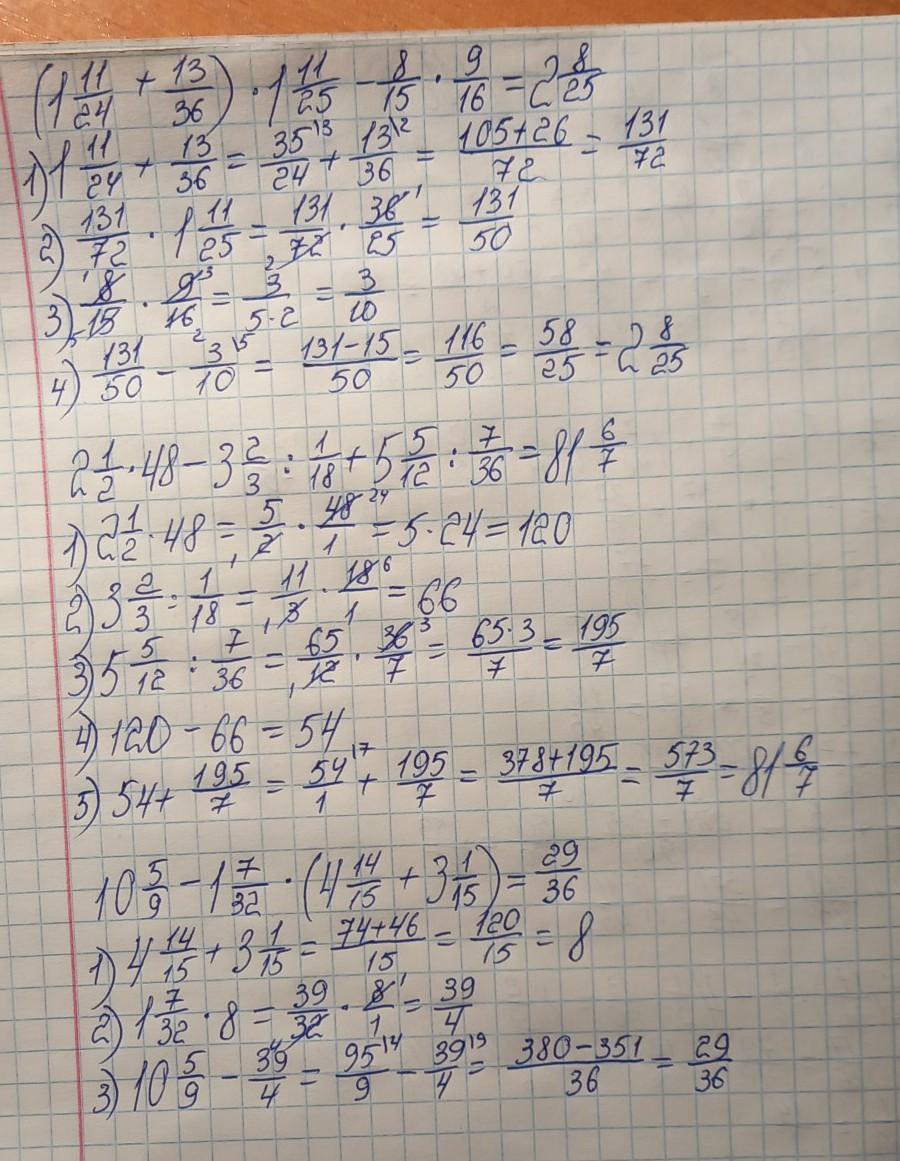 (1 11/24 + 13/36) · 1 11/25 - 8/15 · 9/16 = 2 8/25
1) 1 11/24 + 13/36 = 35\3/24 + 13\2/36 = 105+26/72 = 131/72
2) 131/72 · 1 11/25 = 131/72 2 · 36 1/25 = 131/50
3) 1 8/5 15 · 9 3/16 2 = 3/5·2 = 3/10
4) 131/50 - 3\5/10 = 131-15/50 = 116/50 = 58/25 = 2 8/25
2 1/2 · 48 - 3 2/3 : 1/18 + 5 5/12 : 7/36 = 81 6/7
1) 2 1/2 · 48 = 5/1 2 · 48 24/1 = 5·24 = 120
2) 3 2/3 : 1/18 = 11/1 3 · 18 6/1 = 66
3) 5 5/12 : 7/36 = 65/1 12 · 36 3/7 = 65·3/7 = 195/7
4) 120 - 66 = 54
5) 54 + 195/7 = 54\7/1 + 195/7 = 378+195/7 = 573/7 = 81 6/7
10 5/9 - 1 7/32 · (4 14/15 + 3 1/15) = 29/36
1) 4 14/15 + 3 1/15 = 74+46/15 = 120/15 = 8
2) 1 7/32 · 8 = 39/32 4 · 8 1/1 = 39/4
3) 10 5/9 - 39/4 = 95\4/9 - 39\9/4 = 380-351/36 = 29/36